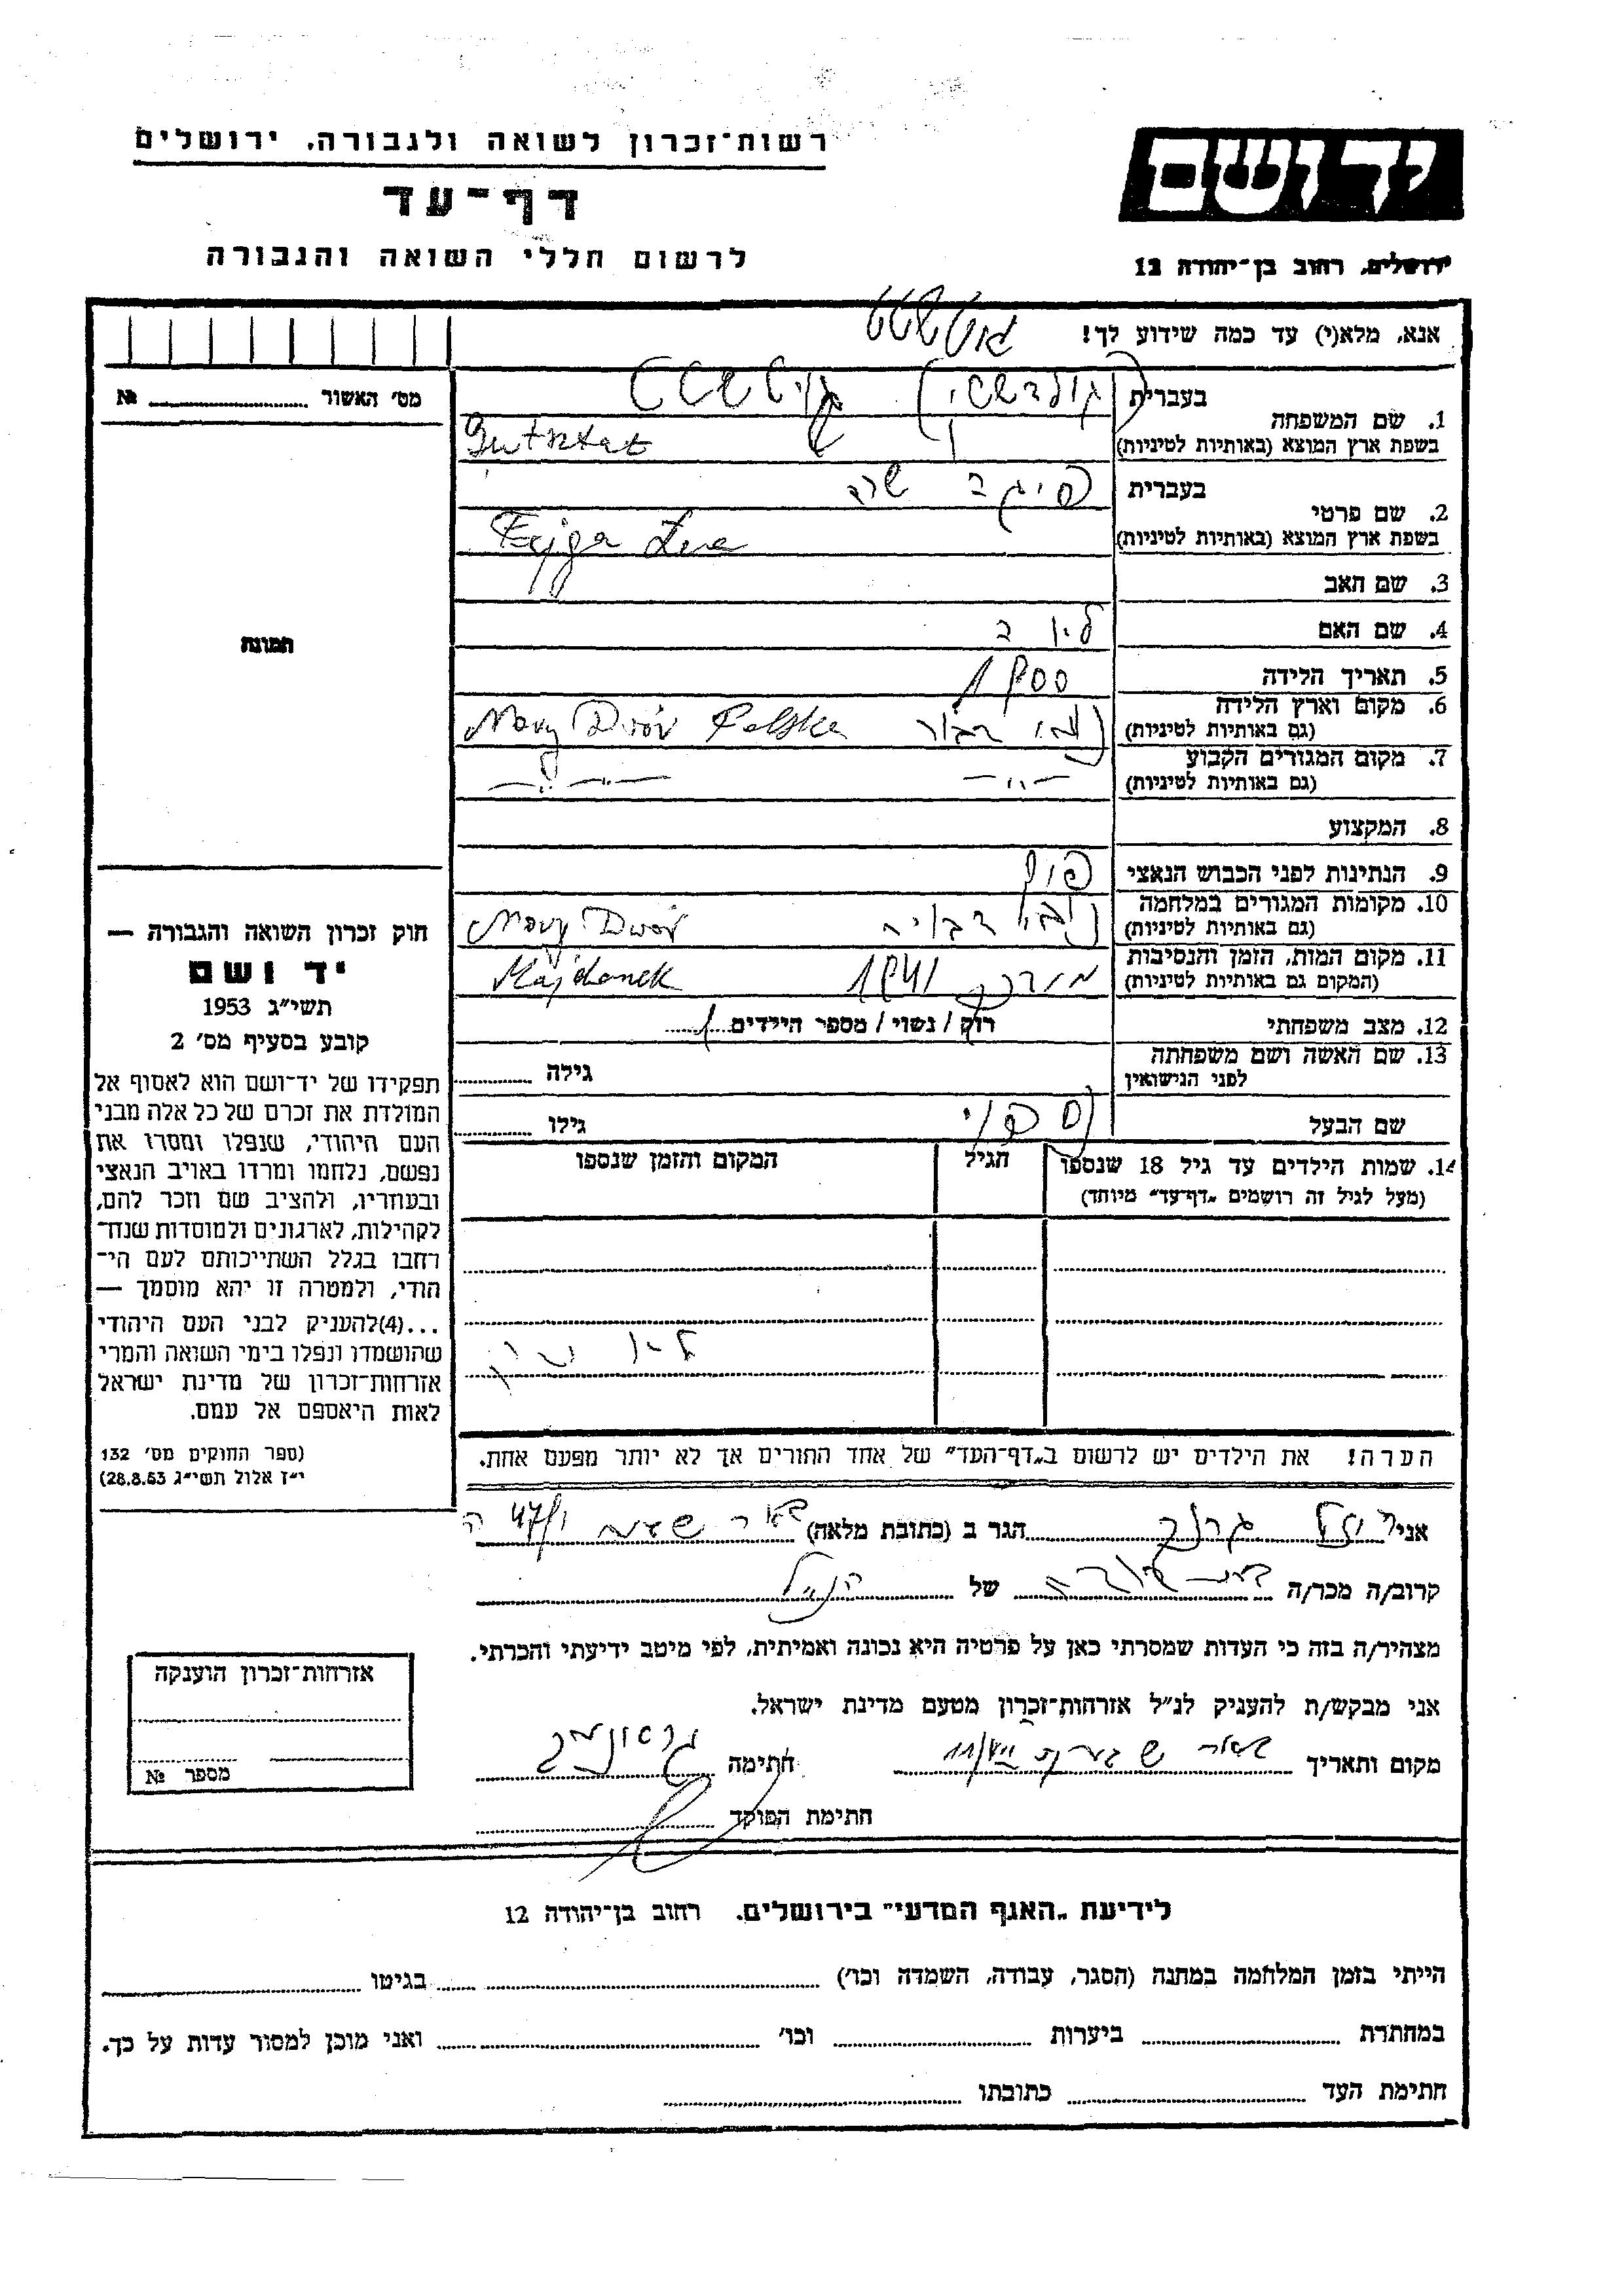 רשות־זכרון לשואה ולגבורה. ירושלים
ידושם
דף־עד
לרשום חללי השואה והגבורה
ירושלים, רחוב בן־יהודה 12
אנא, מלא(י) עד כמה שידוע לך!
גוטשטט
מס׳ האשור № 
1. שם המשפחה
בעברית
בשפת ארץ המוצא (באותיות לטיניות)
Gutsztat
2. שם פרטי
בעברית פיגה שרה
בשפת ארץ המוצא (באותיות לטיניות) Fejga
3. שם האב
4. שם האם
5. תאריך הלידה 1900
6. מקום וארץ הלידה
(גם באותיות לטיניות) Nowy Dwór Polska
7. מקום המגורים הקבוע
(גם באותיות לטיניות) —״— —״—
8. המקצוע
9. הנתינות לפני הכבוש הנאצי
10. מקומות המגורים במלחמה
(גם באותיות לטיניות) Nowy Dwór
11. מקום המות, הזמן והנסיבות
(המקום גם באותיות לטיניות) 1941 Majdanek
12. מצב משפחתי רוק / נשוי / מספר הילדים
13. שם האשה ושם משפחתה
לפני הנישואין
גילה
שם הבעל
גילו
14. שמות הילדים עד גיל 18 שנספו
(מעל לגיל זה רושמים „דף־עד״ מיוחד)
הגיל
המקום והזמן שנספו
הערה! את הילדים יש לרשום ב„דף־העד״ של אחד ההורים אך לא יותר מפעם אחת.
תמונה
חוק זכרון השואה והגבורה —
יד ושם
תשי״ג 1953
קובע בסעיף מס׳ 2
תפקידו של יד־ושם הוא לאסוף אל
המולדת את זכרם של כל אלה מבני
העם היהודי, שנפלו ומסרו את
נפשם, נלחמו ומרדו באויב הנאצי
ובעוזריו, ולהציב שם וזכר להם,
לקהילות, לארגונים ולמוסדות שנח־
רחבו בגלל השתייכותם לעם הי־
הודי, ולמטרה זו יהא מוסמך —
...(4)להעניק לבני העם היהודי
שהושמדו ונפלו בימי השואה והמרי
אזרחות־זכרון של מדינת ישראל
לאות היאספם אל עמם.
(ספר החוקים מס׳ 132
י״ז אלול תשי״ג 28.8.53)
אני הגר ב (כתובת מלאה) באר שבע
קרוב/ה מכר/ה של הנ״ל
מצהיר/ה בזה כי העדות שמסרתי כאן על פרטיה היא נכונה ואמיתית, לפי מיטב ידיעתי והכרתי.
אני מבקש/ת להעניק לנ״ל אזרחות־זכרון מטעם מדינת ישראל.
מקום ותאריך באר שבע חתימה
חתימת הפוקד
אזרחות־זכרון הוענקה
מספר №
לידיעת „האגף המדעי״ בירושלים. רחוב בן־יהודה 12
הייתי בזמן המלחמה במחנה (הסגר, עבודה, השמדה וכו׳) בגיטו
במחתרת ביערות וכו׳ ואני מוכן למסור עדות על כך.
חתימת העד כתובתו